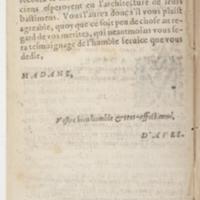 ciens esperoyent en l'architecture de leurs
bastimens. Vous l'aurez donc s'il vous plaist
agreable, quoy que ce soit peu de chose au re-
gard de vos merites, qui neantmoins vous se-
ra tesmoignage de l'humble seruice que vous
dedie,
MADAME,
Vostre bien humble & tres-affectionné,
D'AVFL.